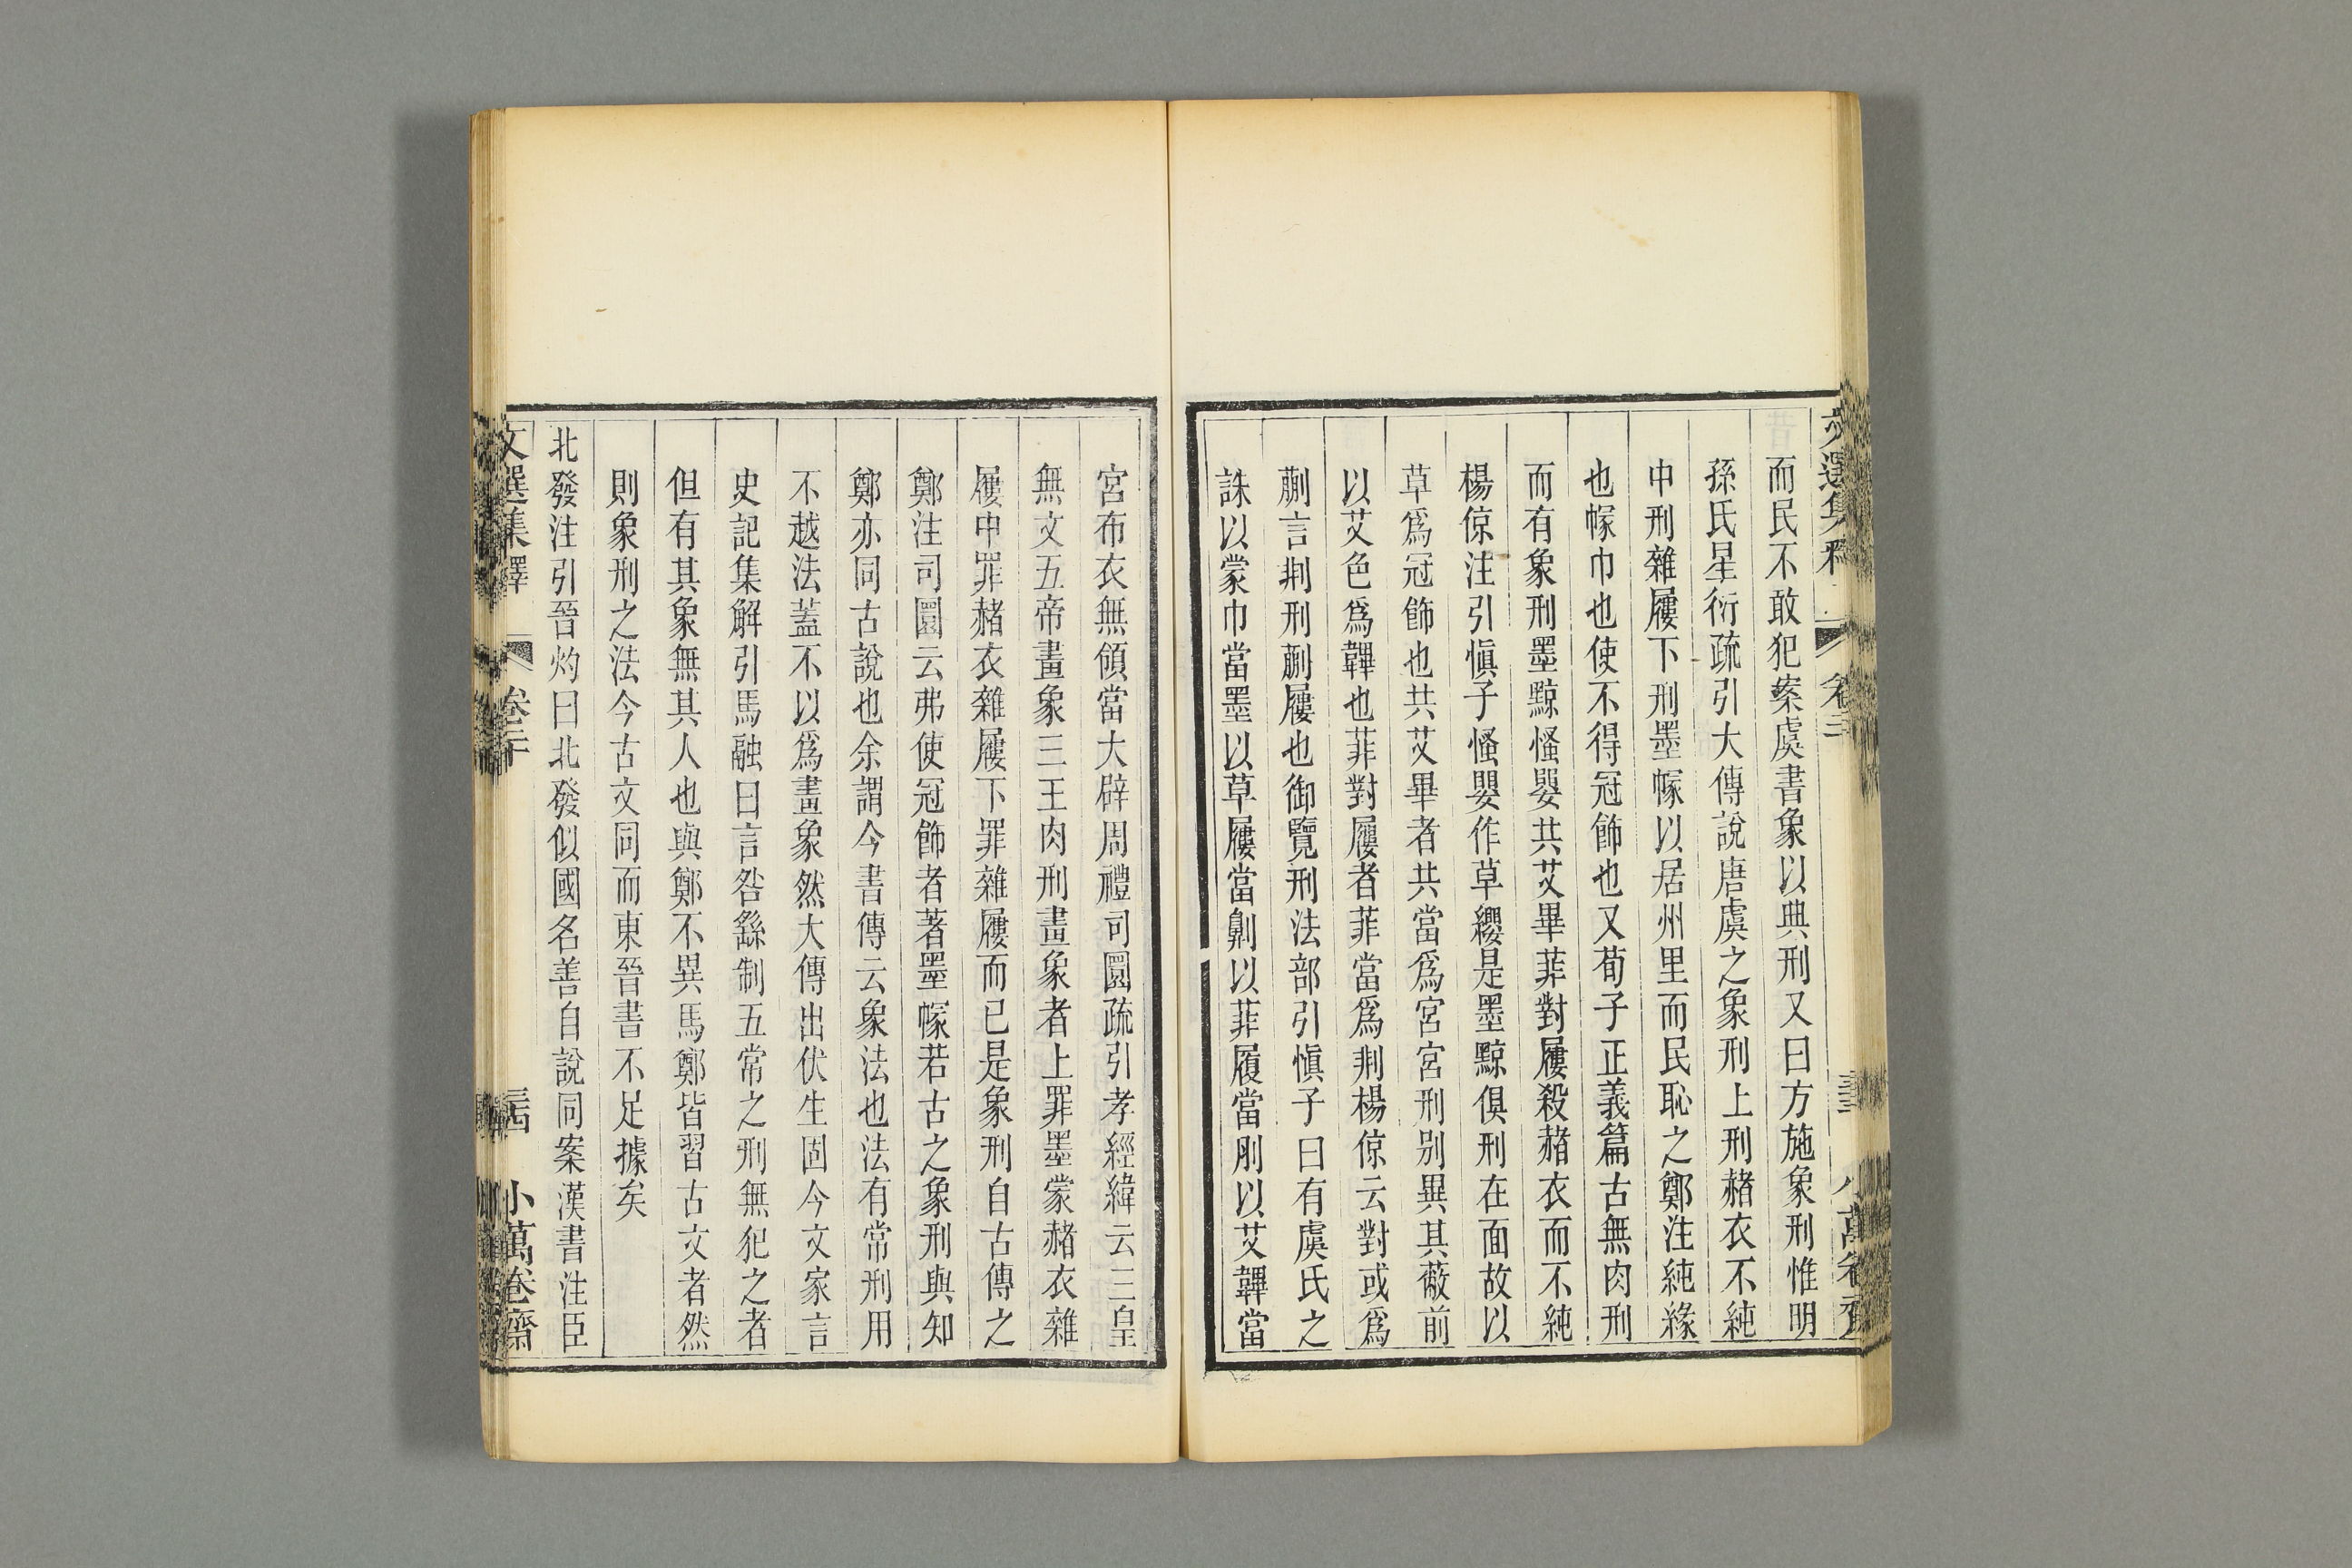 而民不敢犯案虞書象以典刑又曰方施象刑惟明
孫氏星衍疏引大傳說唐虞之象刑上刑赭衣不純
中刑雜屨下刑墨幪以居州里而民恥之鄭注純緣
也幪巾也使不得冠飾也又荀子正義篇古無肉刑
而有象刑墨黥慅嬰共艾畢菲對屨殺赭衣而不純
楊倞注引愼子慅嬰作草纓是墨黥俱刑在面故以
草爲冠飾也共艾畢者共當爲宮宮刑別異其蔽前
以艾色爲韠也菲對屨者菲當爲剕楊倞云對或爲
蒯言剕刑蒯屨也御覽刑法部引愼子曰有虞氏之
誅以蒙巾當墨以草屨當劓以菲履當刖以艾韠當
宮布衣無領當大辟周禮司圜疏引孝經緯云三皇
無文五帝畫象三王肉刑畫象者上罪墨蒙赭衣雜
屨中罪赭衣雜屨下罪雜屨而已是象刑自古傳之
鄭注司圜云弗使冠飾者著墨幪若古之象刑與知
鄭亦同古說也余謂今書傳云象法也法有常刑用
不越法蓋不以爲畫象然大傳出伏生固今文家言
史記集解引馬融曰言咎繇制五常之刑無犯之者
但有其象無其人也與鄭不異馬鄭皆習古文者然
則象刑之法今古文同而東晉書不足據矣
北發注引晉灼曰北發似國名善自說同案漢書注臣
文選集釋 卷二十 三四 小萬卷齋